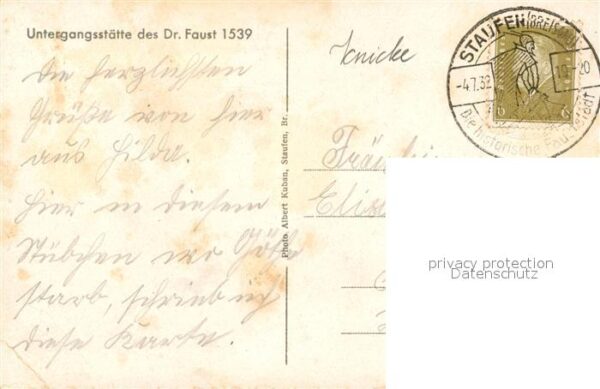 Untergangsstätte des Dr. Faust 1539
Die herzlichsten
Grüße von hier
aus Hilda.
Hier in diesem
Stübchen wo Göthe
starb, schrieb ich
diese Karte.
Photo Albert Kuban, Staufen, Br.
Knicke
STAUFEN (BREISGAU)
-4.7.32 10-20
Die historische Fauststadt
6 6
Fräulein
privacy protection
Datenschutz